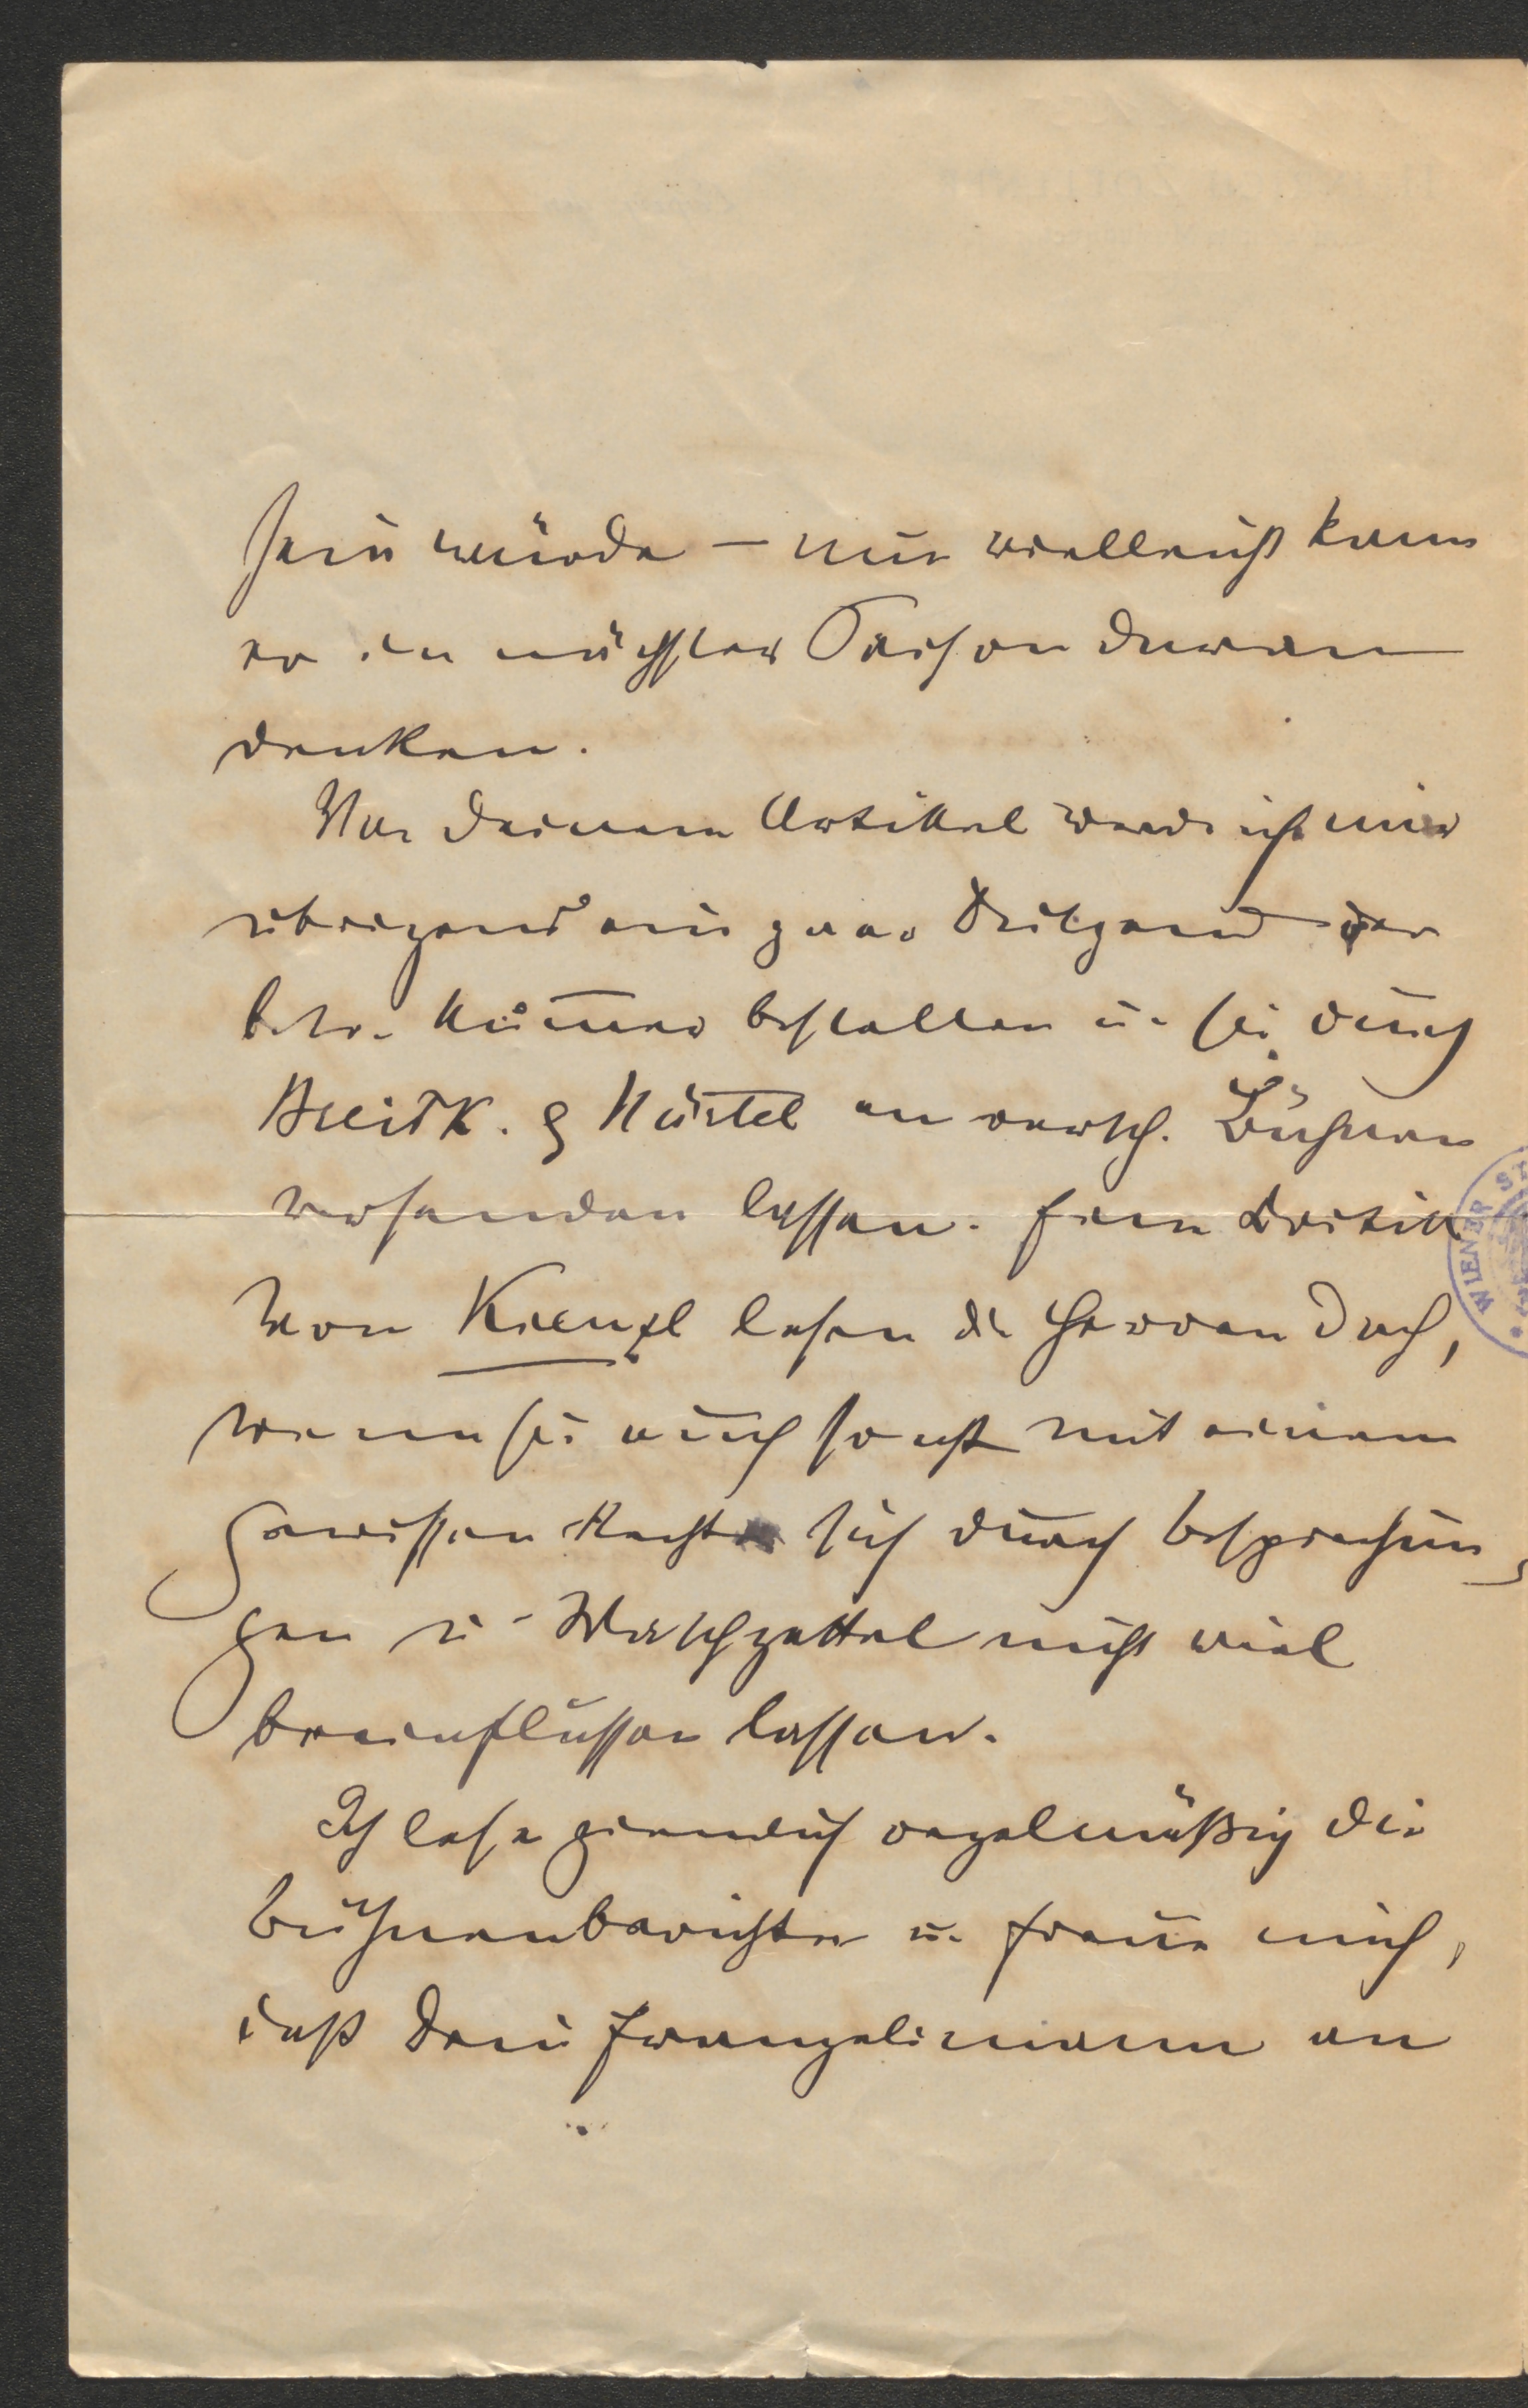 sein würde – nur vielleicht kann
er in nächster Saison daran
denken.
Von Deinem Artikel werde ich mir
übrigens ein paar Dutzend der
betr. Num̅er bestellen u. sie durch
Breitk. & Härtel an versch. Bühnen
versenden lassen. Eine Kritik
von Kienzl lesen die Herren doch,
wenn sie auch sonst mit einem
gewissen Rechte sich durch Besprechun-
gen u. Waschzettel nicht viel
beeinflussen lassen.
Ich lese ziemlich regelmäßig die
Bühnenberichte u. freue mich,
daß Dein Evangelimann an
WIENER ST